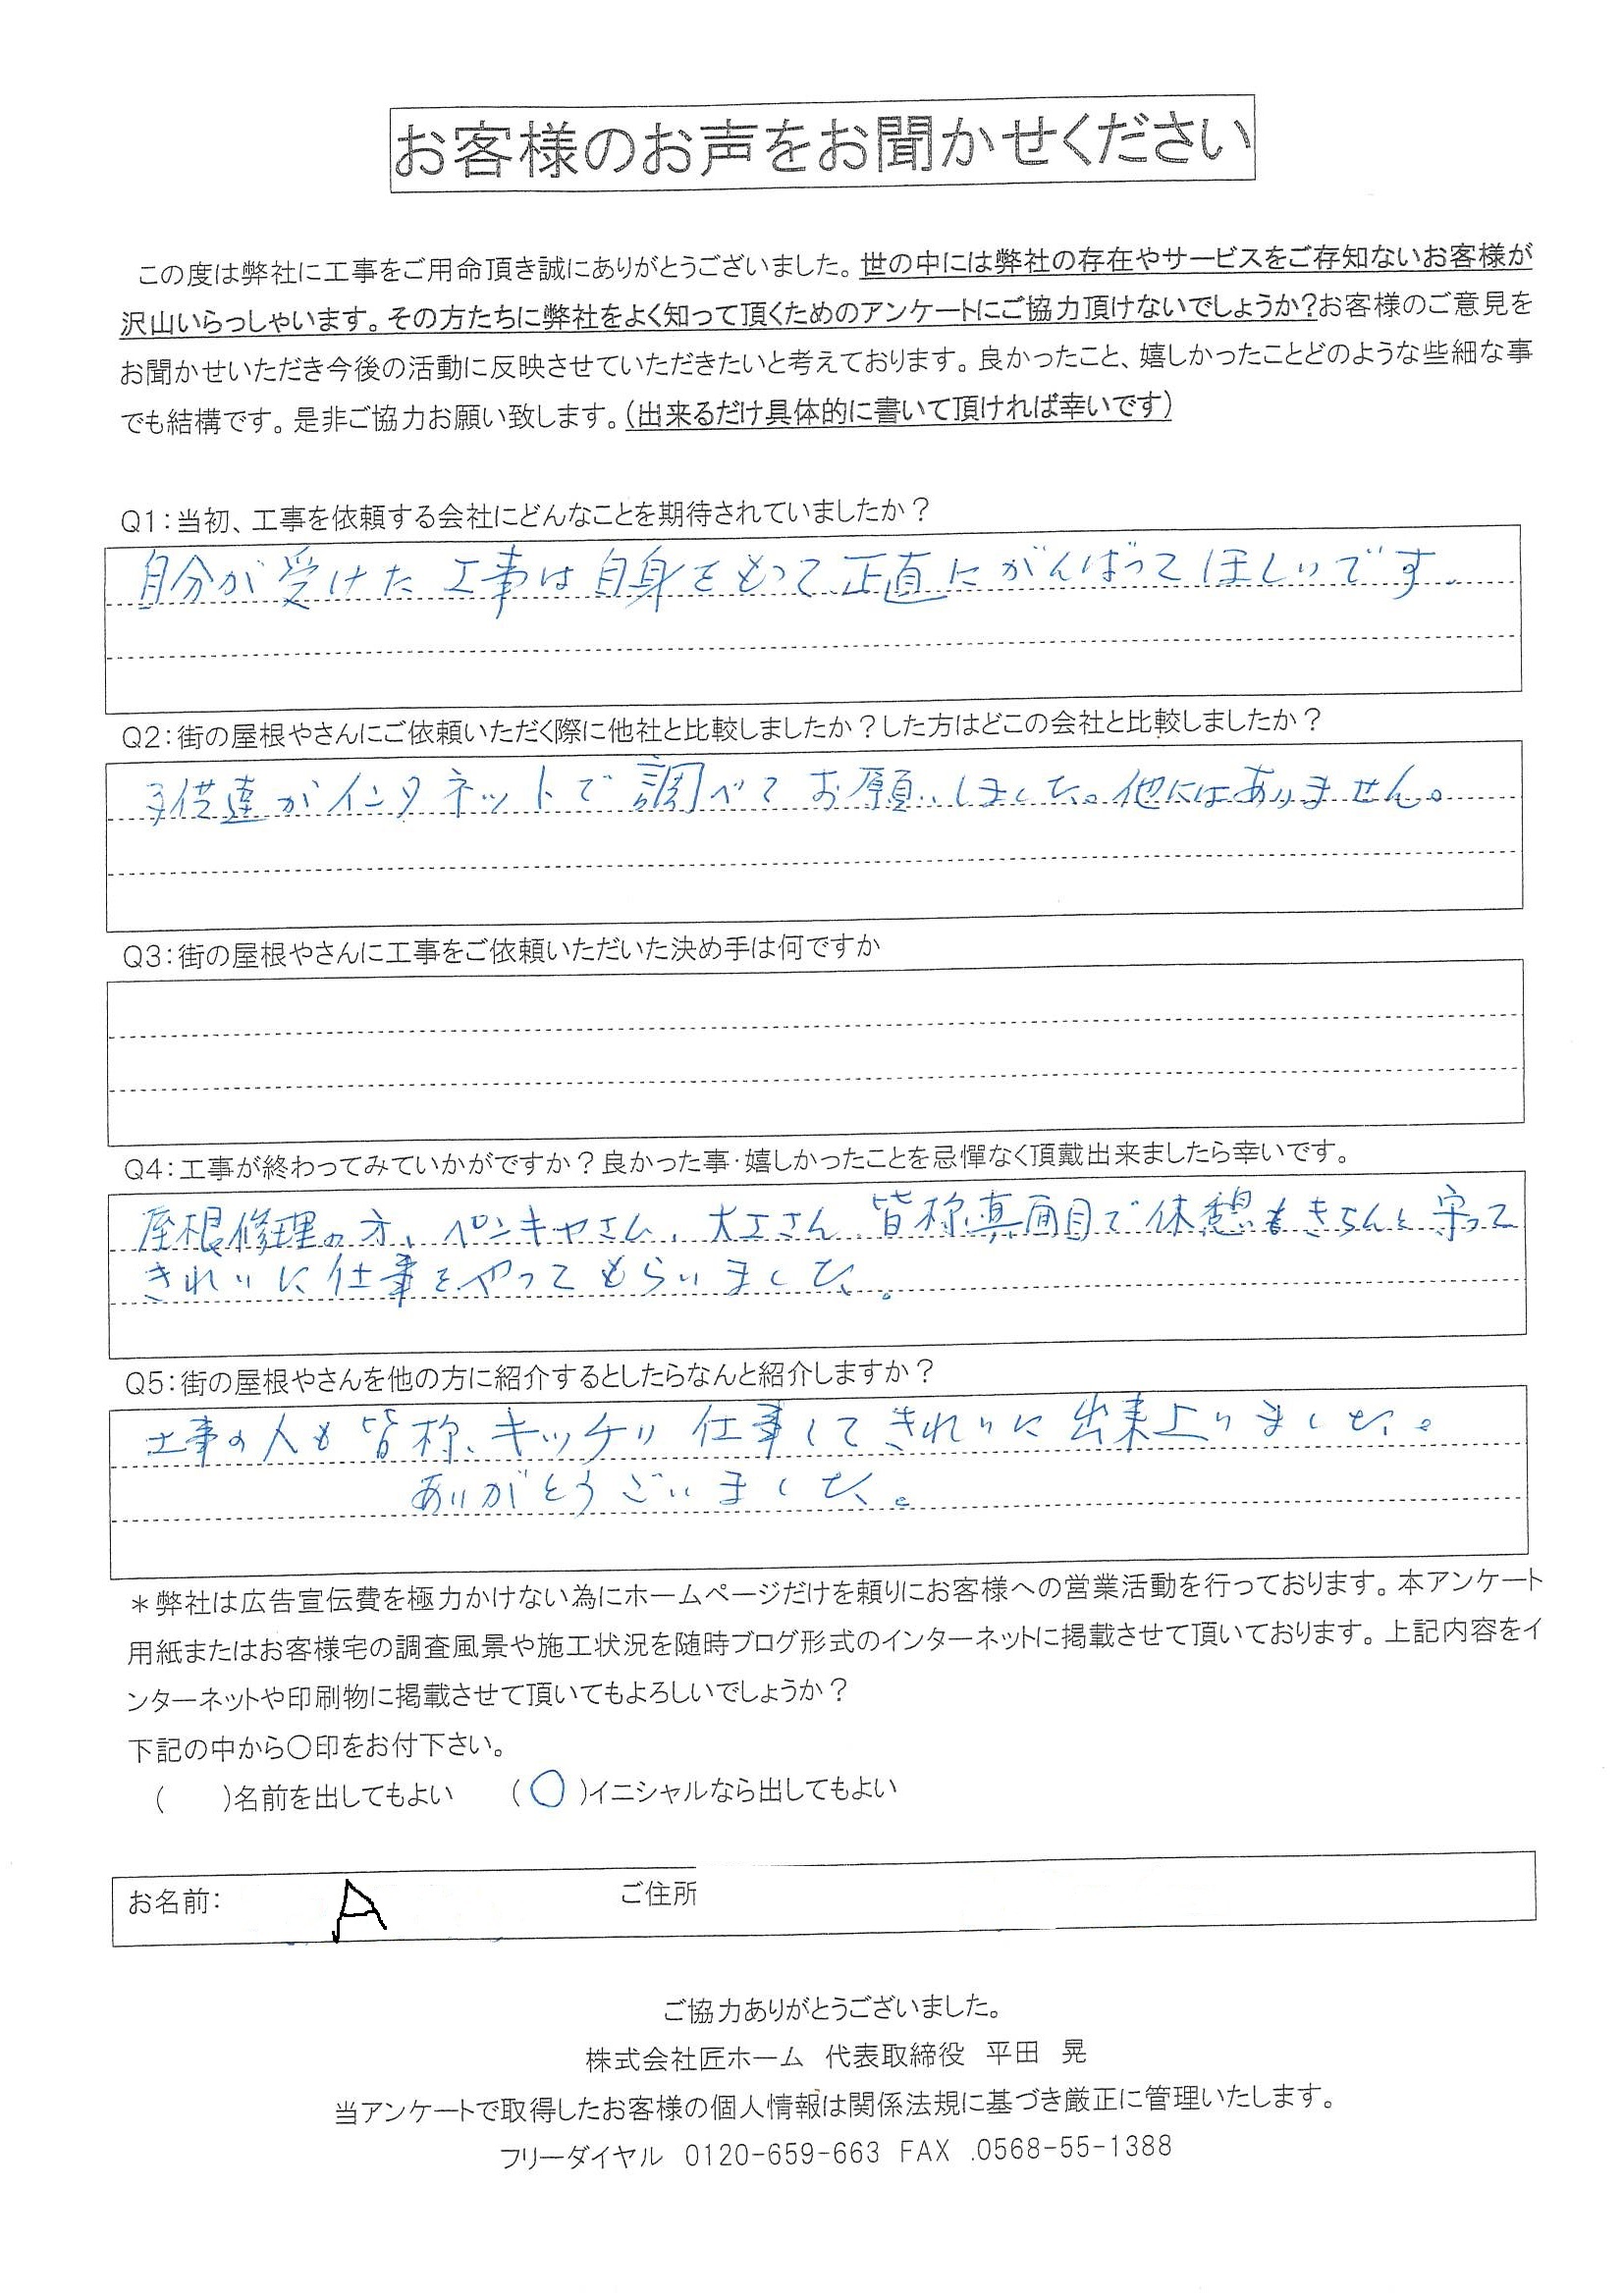 お客様のお声をお聞かせください
この度は弊社に工事をご用命頂き誠にありがとうございました。世の中には弊社の存在やサービスをご存知ないお客様が
沢山いらっしゃいます。その方たちに弊社をよく知って頂くためのアンケートにご協力頂けないでしょうか?お客様のご意見を
お聞かせいただき今後の活動に反映させていただきたいと考えております。良かったこと、嬉しかったことどのような些細な事
でも結構です。是非ご協力お願い致します。(出来るだけ具体的に書いて頂ければ幸いです)
Q1:当初、工事を依頼する会社にどんなことを期待されていましたか?
自分が受けた工事は自身をもって正直にがんばってほしいです。
Q2:街の屋根やさんにご依頼いただく際に他社と比較しましたか?した方はどこの会社と比較しましたか?
子供達がインタネットで調べてお願いしました。他にはありません。
Q3:街の屋根やさんに工事をご依頼いただいた決め手は何ですか
Q4:工事が終わってみていかがですか?良かった事・嬉しかったことを忌憚なく頂戴出来ましたら幸いです。
屋根修理の方、ペンキヤさん、大工さん、皆称真面目で休憩もきちんと守って
きれいに仕事をやってもらいました。
Q5:街の屋根やさんを他の方に紹介するとしたらなんと紹介しますか?
工事の人も皆称、キッチリ仕事してきれいに出来上りました。
ありがとうございました。
*弊社は広告宣伝費を極力かけない為にホームページだけを頼りにお客様への営業活動を行っております。本アンケート
用紙またはお客様宅の調査風景や施工状況を随時ブログ形式のインターネットに掲載させて頂いております。上記内容をイ
ンターネットや印刷物に掲載させて頂いてもよろしいでしょうか?
下記の中から〇印をお付下さい。
(　　)名前を出してもよい　　(〇)イニシャルなら出してもよい
お名前:　A　ご住所
ご協力ありがとうございました。
株式会社匠ホーム　代表取締役　平田　晃
当アンケートで取得したお客様の個人情報は関係法規に基づき厳正に管理いたします。
フリーダイヤル　0120-659-663 FAX .0568-55-1388